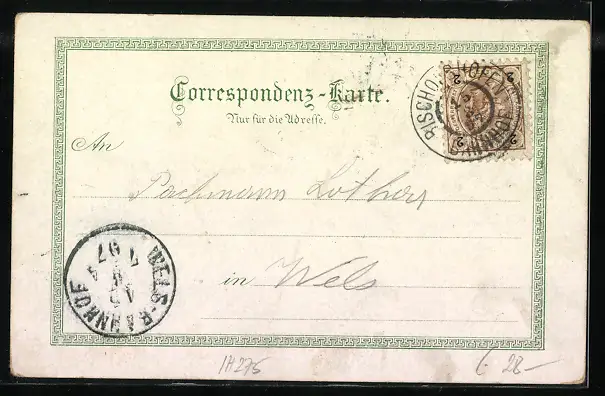 Correspondenz-Karte.
Nur für die Adresse.
An
Pachmann Lothar
in Wels
BISCHOFSHOFEN BAHNHOF
2 2 2 2
WELS-BAHNHOF
97
1H275
28-